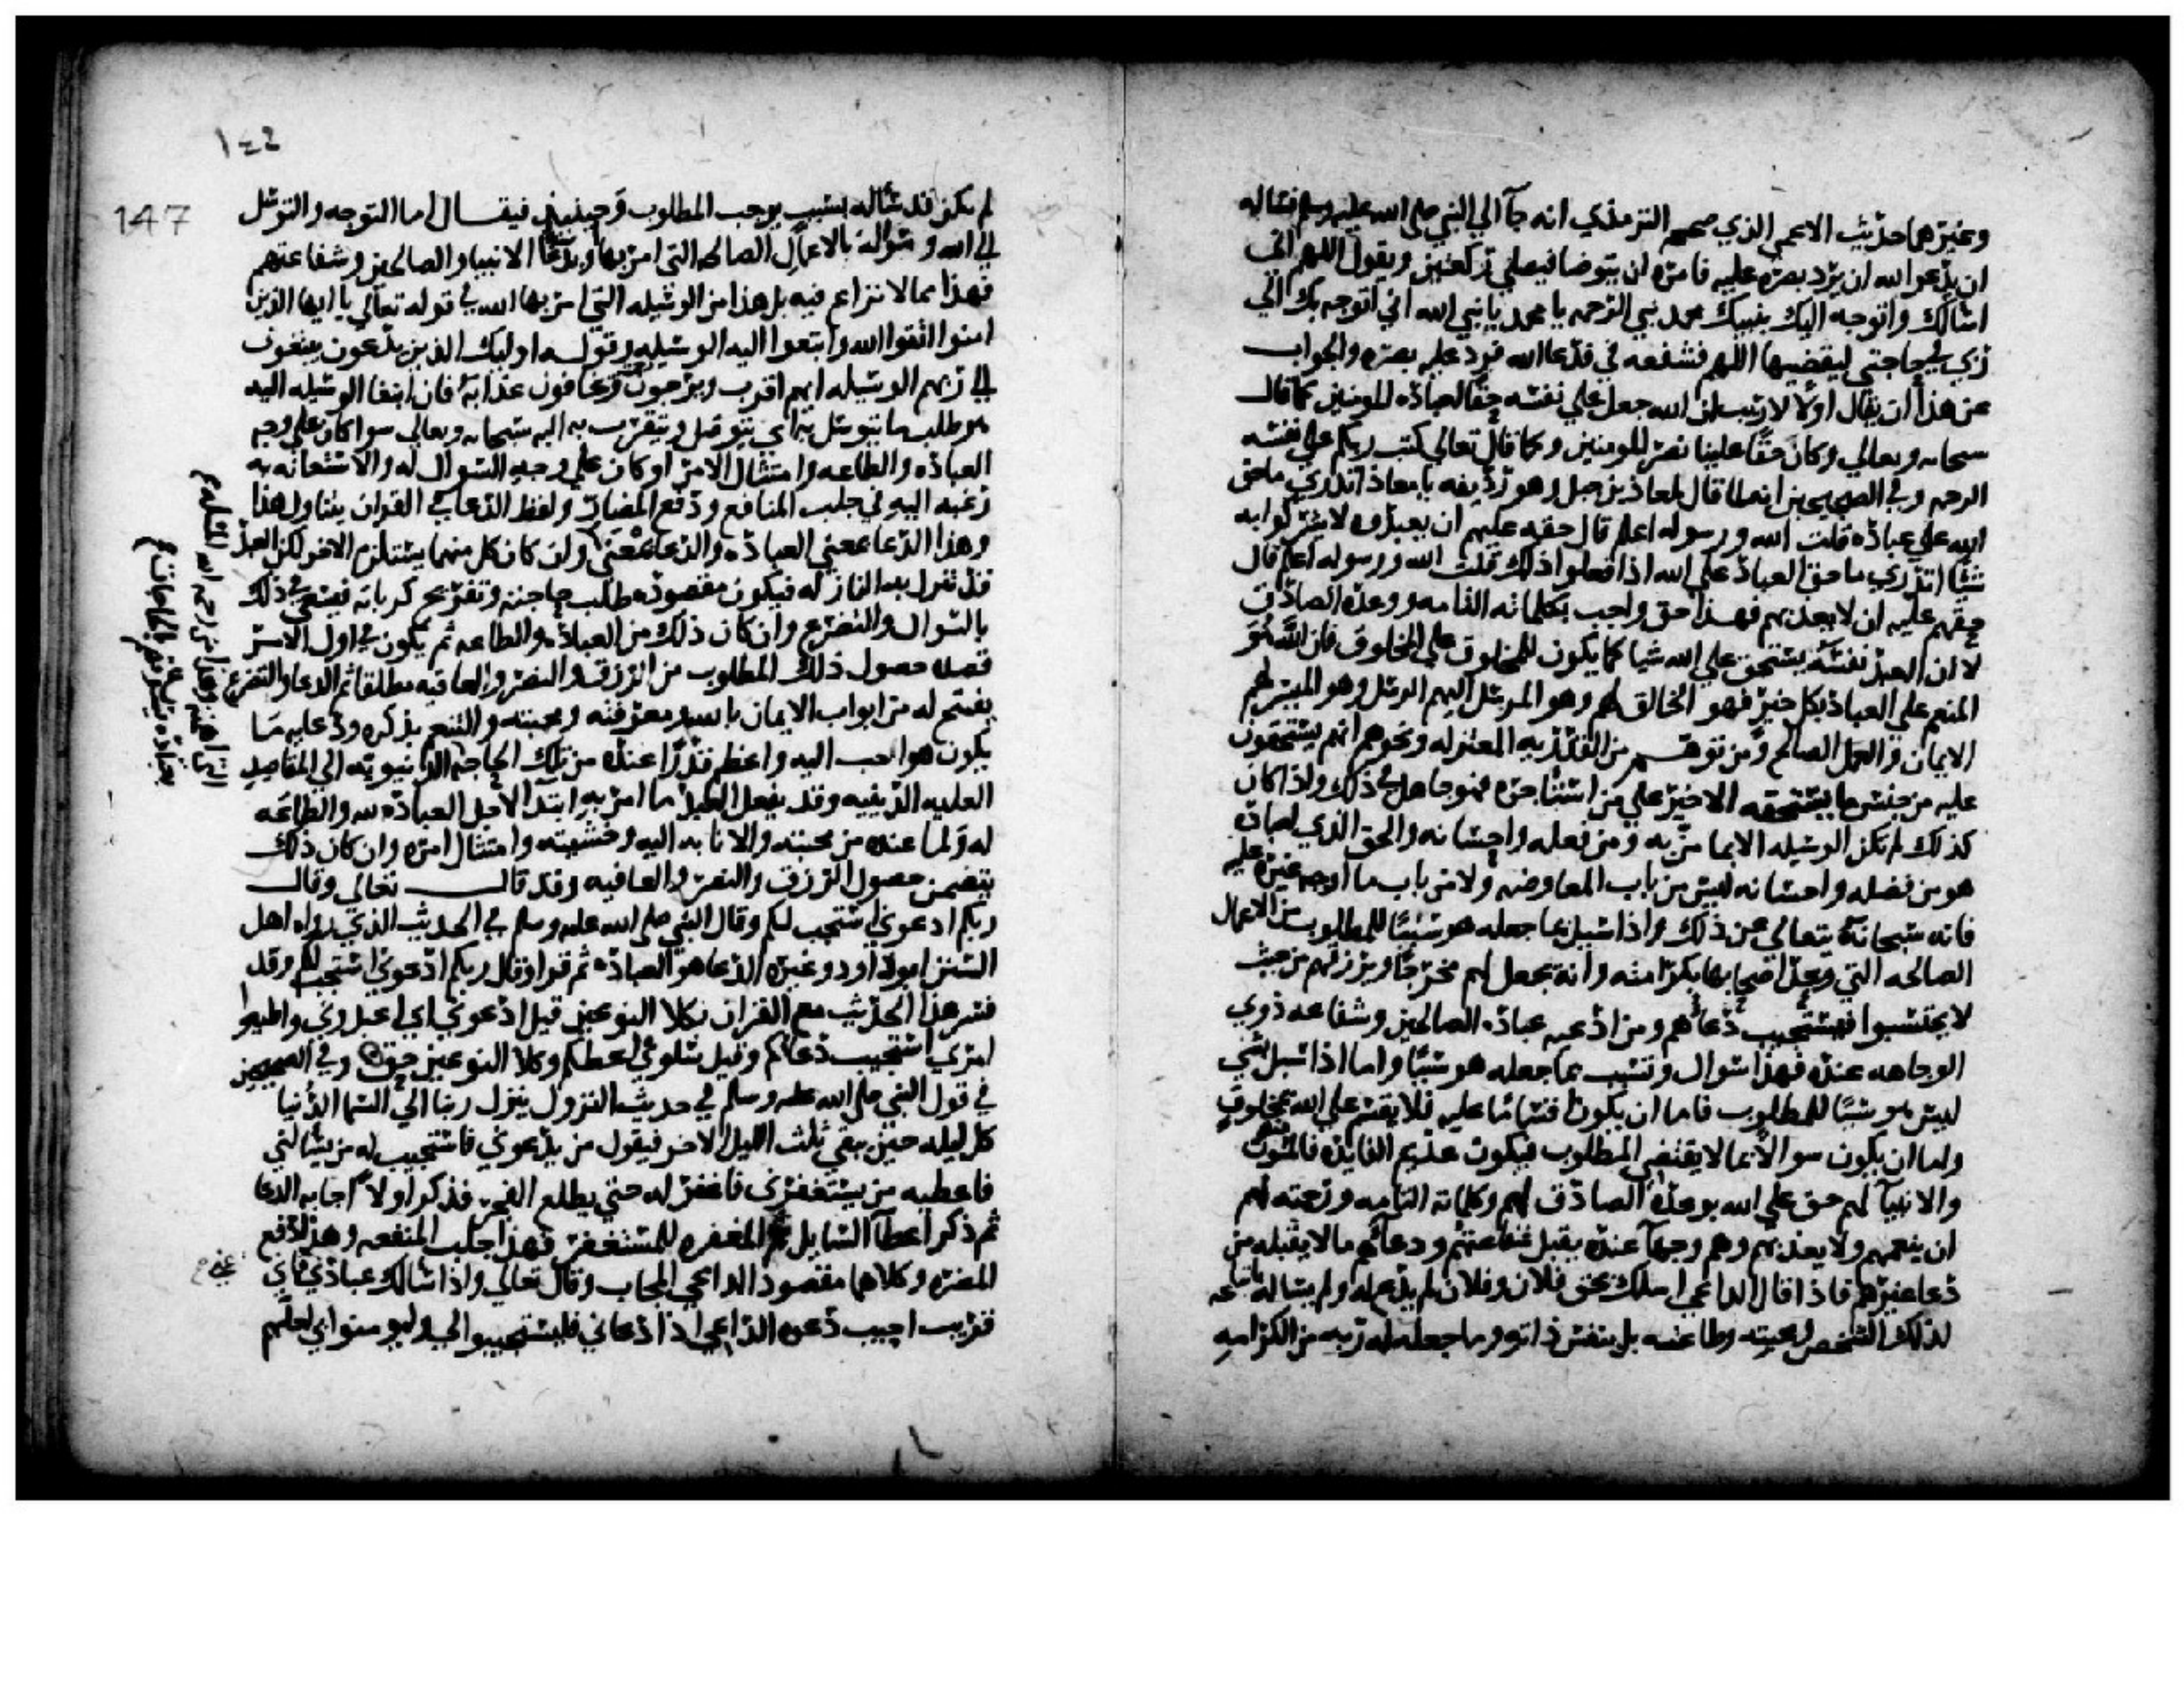 وغيرهما حديث الاعمى الذي صححه الترمذي انه جآ الي النبي صلى الله عليه وسلم فساله
ان يدعو الله ان يرد بصره عليه فامره ان يتوضا فيصلي ركعتين ويقول اللهم اني
اسالك واتوجه اليك بنبيك محمد نبي الرحمه يا محمد يا نبي الله اني اتوجه بك الي
ربي في حاجتي ليقضيها اللهم فشفعه في فدعا الله فرد عليه بصره والجواب
عن هذا ان يقال اولا لا ريب ان الله جعل علي نفسه حقا لعباده المومنين كما قال
سبحانه وتعالي وكان حقا علينا نصر المومنين وكما قال تعالي كتب ربكم علي نفسه
الرحمه وفي الصحيحين انه لما قال لمعاذ بن جبل وهو رديفه يا معاذ اتدري ما حق
الله علي عباده قلت الله ورسوله اعلم قال حقه عليهم ان يعبدوه لا يشركوا به
شيا اتدري ما حق العباد علي الله اذا فعلوا ذلك قلت الله ورسوله اعلم قال
حقهم عليه ان لا يعذبهم فهذا حق واجب بكلماته التامه ووعده الصادق
لا ان العبد نفسه يستحق علي الله شيا كما يكون للمخلوق علي المخلوق فان الله هو
المنعم علي العباد بكل خير فهو الخالق لهم وهو المرسل اليهم الرسل وهو الميسر لهم
الايمان والعمل الصالح ومن توهم من القدريه المعتزله ونحوهم انهم يستحقون
عليه من جنس ما يستحقه الاجير علي من استاجره فهو جاهل في ذلك واذا كان
كذلك لم تكن الوسيله الا بما من به ومن فعله واحسانه والحق الذي لعباده
هو من فضله واحسانه ليس من باب المعاوضه ولا من باب ما اوجبه غيره عليه
فانه سبحانه يتعالي عن ذلك واذا سيل بما جعله هو سببا للمطلوب من الاعمال
الصالحه التي وعد اصحابها بكرامته وانه يجعل لهم مخرجا ويرزقهم من حيث
لا يحتسبوا فيستجيب دعاهم ومن ادعيه عباده الصالحين وشفاعه ذوي
الوجاهه عنده فهذا سوال وتسبب بما جعله هو سببا واما اذا سيل بشي
ليس هو سببا للمطلوب فاما ان يكون اقساما عليه فلا يقسم علي الله بمخلوق
واما ان يكون سوالا بما لا يقتضي المطلوب فيكون عديم الفايده فالمومنون
والانبيآ لهم حق علي الله بوعده الصادق لهم وكلماته التامه ورحمته لهم
ان ينعمهم ولا يعذبهم وهم وجهآ عنده يقبل شفاعتهم ودعاهم ما لا يقبله من
دعا غيرهم فاذا قال الداعي اسلك بحق فلان وفلان لم يدع له ولم يساله باتباعه
لذلك الشخص ومحبته وطاعته بل بنفس ذاته وما جعله له ربه من الكرامه
١٤٦
147
لم يكن قد ساله بسبب يوجب المطلوب وحينيذ فيقال اما التوجه والتوسل
الي الله وسواله بالاعمال الصالحه التي امر بها وبدعا الانبيا والصالحين وشفاعتهم
فهذا مما لا نزاع فيه بل هذا من الوسيله التي امر بها الله في قوله تعالي يا ايها الذين
امنوا اتقوا الله وابتغوا اليه الوسيله وقوله اوليك الذين يدعون يبتغون
الي ربهم الوسيله ايهم اقرب ويرجون رحمته ويخافون عذابه فان ابتغا الوسيله اليه
هو طلب ما يتوسل به اي يتوصل ويتقرب به اليه سبحانه وتعالي سوا كان علي وجه
العباده والطاعه وامتثال الامر او كان علي وجه السوال له والاستعانه به
رغبه اليه في جلب المنافع ودفع المضار ولفظ الدعا في القران يتناول هذا
وهذا الدعا بمعني العباده والدعا بمعني وان كان كل منهما يستلزم الاخر لكن العبد
قد تنزل به النازله فيكون مقصوده طلب حاجته وتفريج كرباته فيسعي في ذلك
بالسوال والتضرع وان كان ذلك من العباده والطاعه ثم يكون في اول الامر
قصده حصول ذلك المطلوب من الرزق والنصر والعافيه مطلقا ثم الدعا والتضرع
يفتح له من ابواب الايمان بالله ومعرفته ومحبته والتنعم بذكره ودعايه ما
يكون هو احب اليه واعظم قدرا عنده من تلك الحاجه الدنيويه الي المقاصد
العليه الدينيه وقد يفعل العبد ما امر به ابتدآ لاجل العباده لله والطاعه
له ولما عنده من محبته والانابه اليه وخشيته وامتثال امره وان كان ذلك
يتضمن حصول الرزق والنصر والعافيه وقد قال تعالي وقال
ربكم ادعوني استجب لكم وقال النبي صلى الله عليه وسلم في الحديث الذي رواه اهل
السنن ابو داود وغيره الدعا هو العباده ثم قرا وقال ربكم ادعوني استجب لكم وقد
فسر هذا الحديث مع القران بكلا النوعين قيل ادعوني اي اعبدوني واطيعوا
امري استجيب دعاكم وقيل سلوني اعطكم وكلا النوعين حق وفي الصحيحين
في قول النبي صلى الله عليه وسلم في حديث النزول ينزل ربنا الي السما الدنيا
كل ليله حين يبقي ثلث الليل الاخر فيقول من يدعوني فاستجيب له من يسالني
فاعطيه من يستغفرني فاغفر له حتي يطلع الفجر فذكر اولا اجابه الدعا
ثم ذكر اعطآ السايل ثم المغفره للمستغفر فهذا جلب المنفعه وهذا دفع
المضره وكلاهما مقصود الداعي المجاب وقال تعالي واذا سالك عبادي عني فاني
قريب اجيب دعوه الداعي اذا دعاني فليستجيبوا لي وليومنوا بي لعلهم
عني